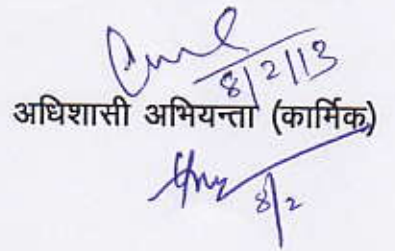 8/2/13
अधिशासी अभियन्ता (कार्मिक)
8/2